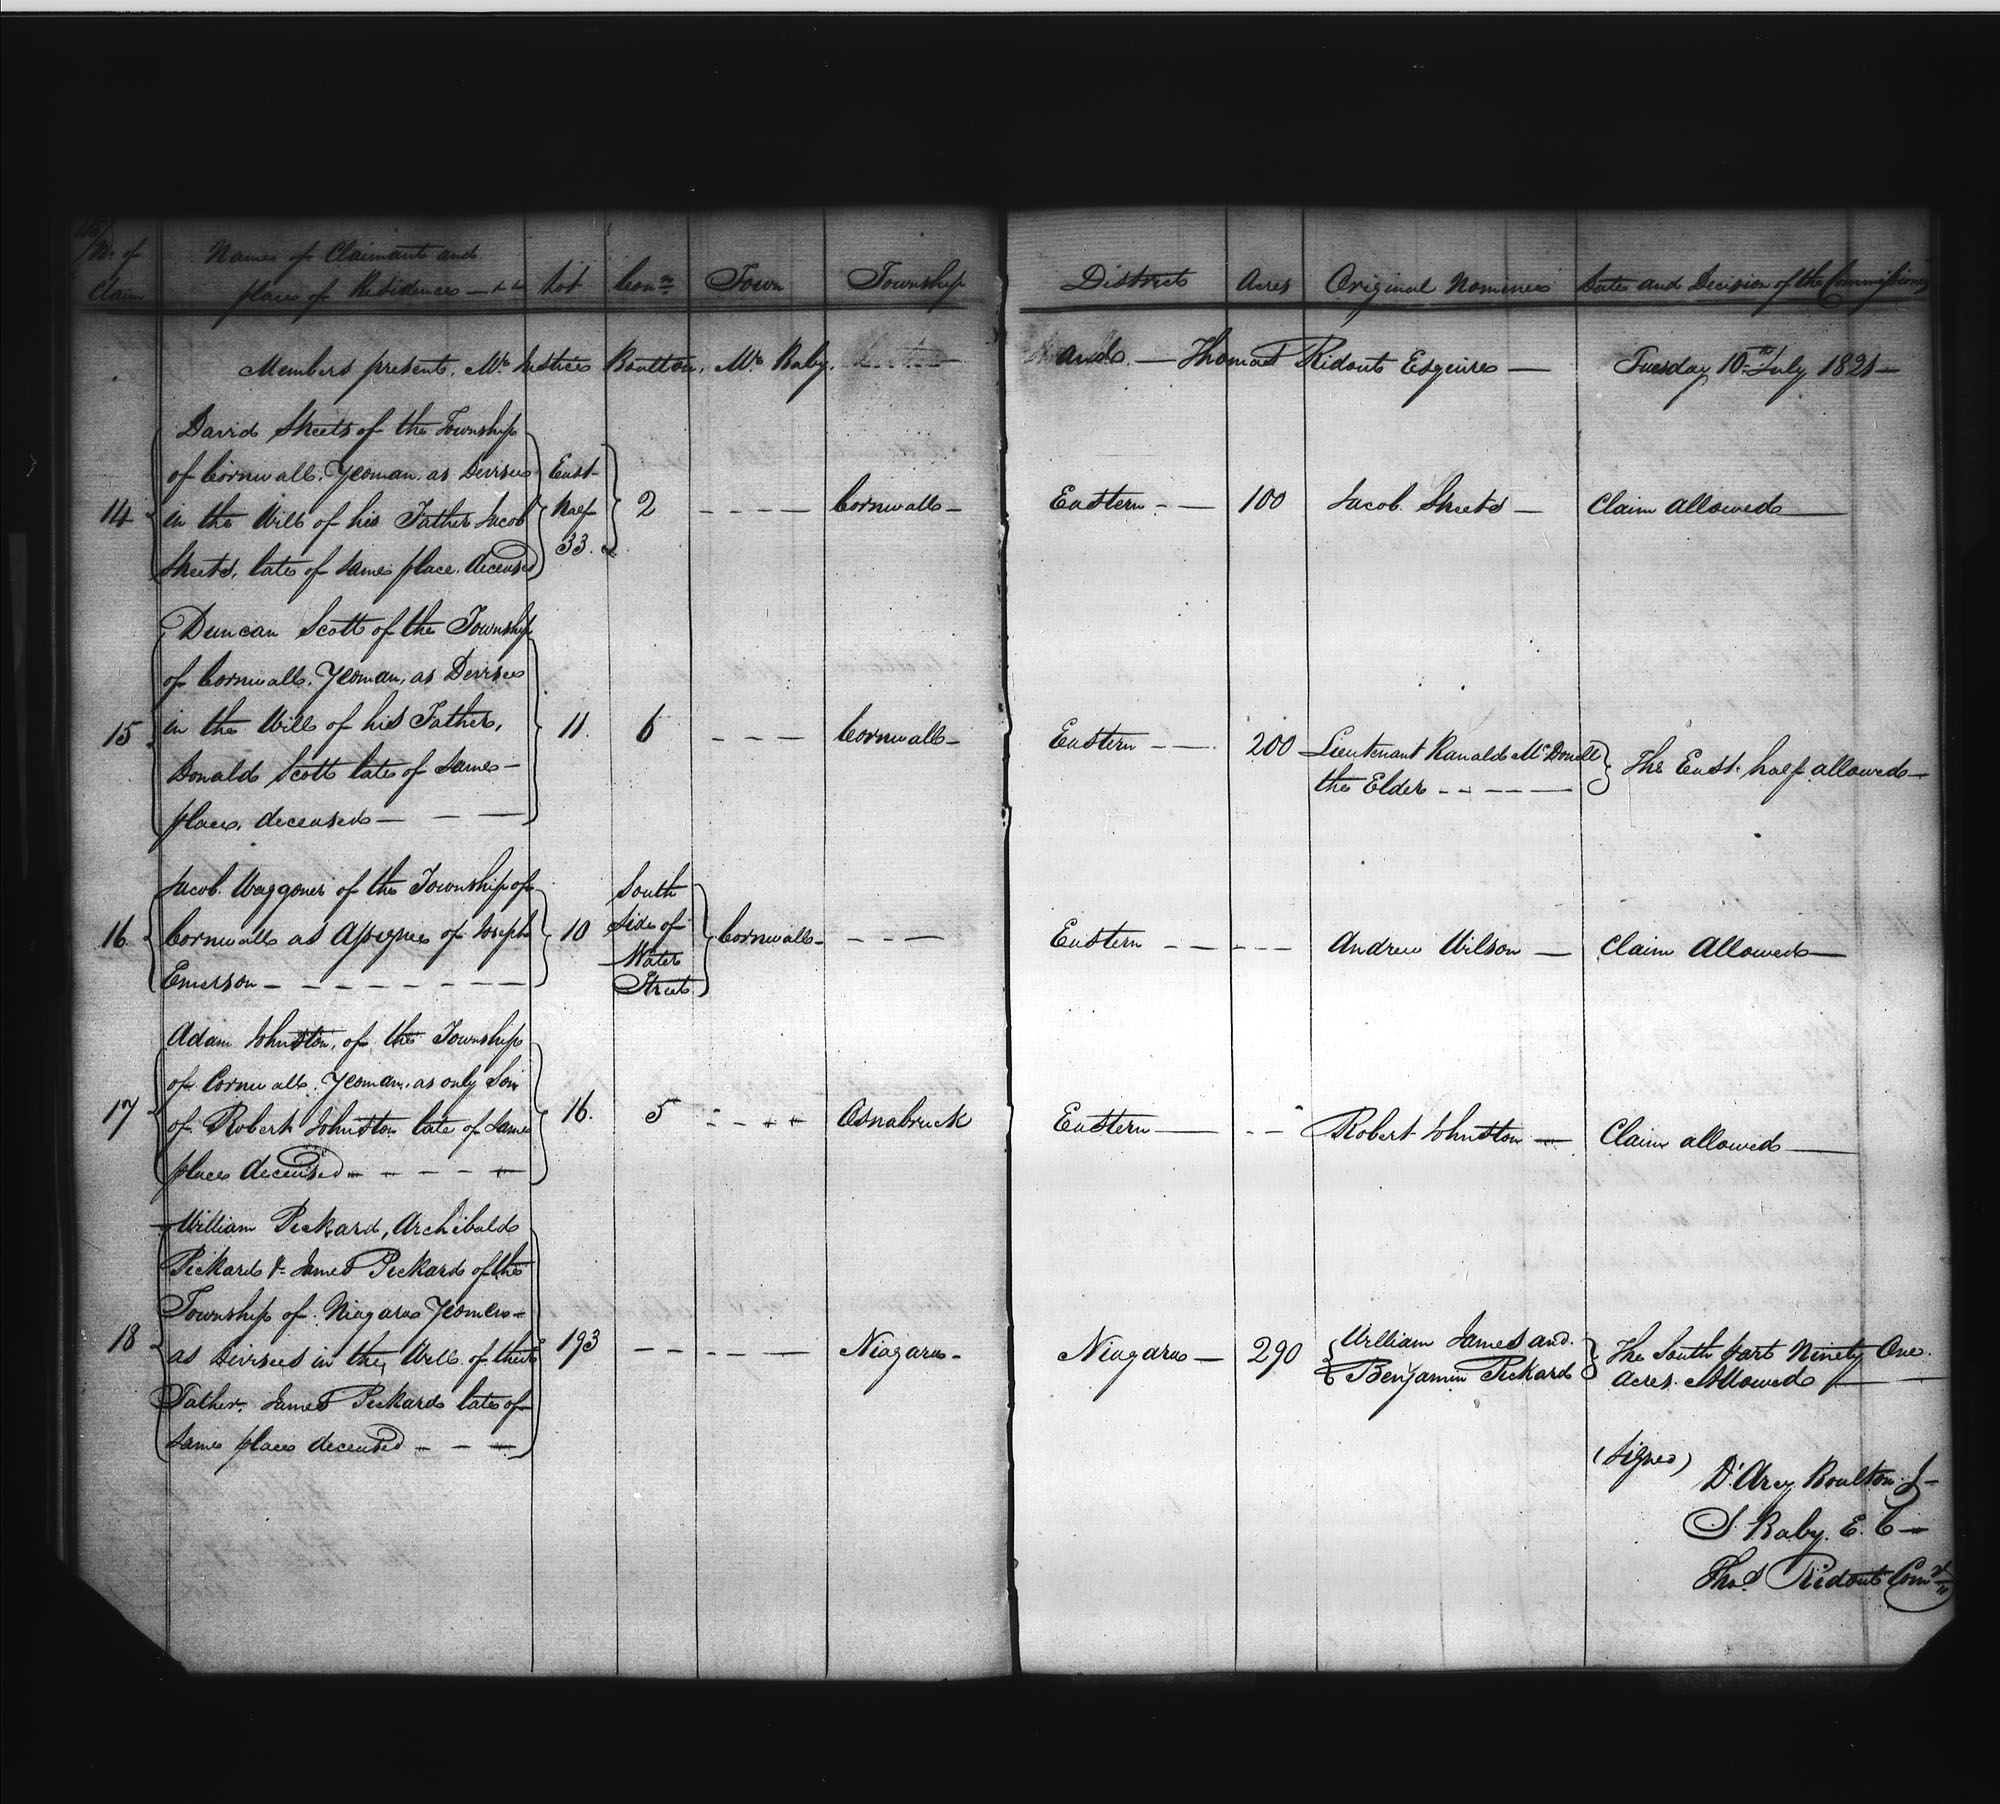 No. of Claim
Names of Claimant and
place of Residence
Lot
Conn.
Town
Township
District
Acres
Original Nominee
Date and Decision of the Commissioners
Members present, Mr. Justice Boulton, Mr. Baby,
and — Thomas Ridout Esquires —
Tuesday 10th July 1821 —
14
David Sheets of the Township
of Cornwall, Yeoman, as Devisee
in the Will of his Father Jacob
Sheets, late of same place deceased
East
half
33.
2
Cornwall —
Eastern
100
Jacob Sheets —
Claim allowed
15
Duncan Scott of the Township
of Cornwall, Yeoman, as Devisee
in the Will of his Father,
Donald Scott late of same
place, deceased
11
6
Cornwall —
Eastern
200
Lieutenant Ranald McDonell
the Elder
The East half allowed
16.
Jacob Waggoner of the Township of
Cornwall as Assignee of Joseph
Emerson
10
South
Side of
Water
Street
Cornwall
Eastern
Andrew Wilson —
Claim Allowed
17
Adam Johnston, of the Township
of Cornwall, Yeoman, as only Son
of Robert Johnston late of same
place deceased
16.
5
Osnabruck
Eastern
Robert Johnston —
Claim allowed
18
William Pickard, Archibald
Pickard & James Pickard of the
Township of Niagara Yeomen
as Devisees in the Will of their
Father, James Pickard late of
same place deceased
193
Niagara
Niagara —
290
William James and
Benjamin Pickard
The South part Ninety One
acres Allowed
(Signed)
D'Arcy Boulton J
J. Baby. E. C
Thos. Ridout Comr